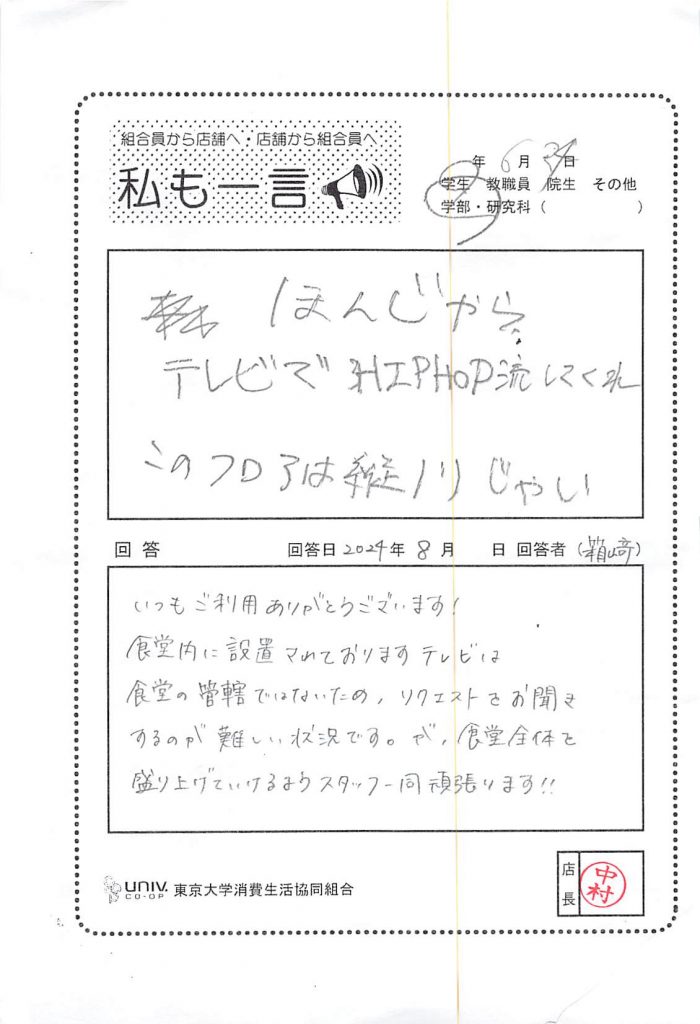 組合員から店舗へ・店舗から組合員へ
私も一言
年 6月 日
学生 教職員 院生 その他
学部・研究科( )
ほんじから
テレビで HIPHOP流してくれ
このフロアは縦ノリじゃい
回答 回答日2024年 8月 日 回答者(箱崎)
いつもご利用ありがとうございます!
食堂内に設置されておりますテレビは
食堂の管轄ではないため、リクエストをお聞き
するのが難しい状況です。が、食堂全体を
盛り上げていけるようスタッフ一同頑張ります!!
UNIV. CO-OP 東京大学消費生活協同組合
店長
中村